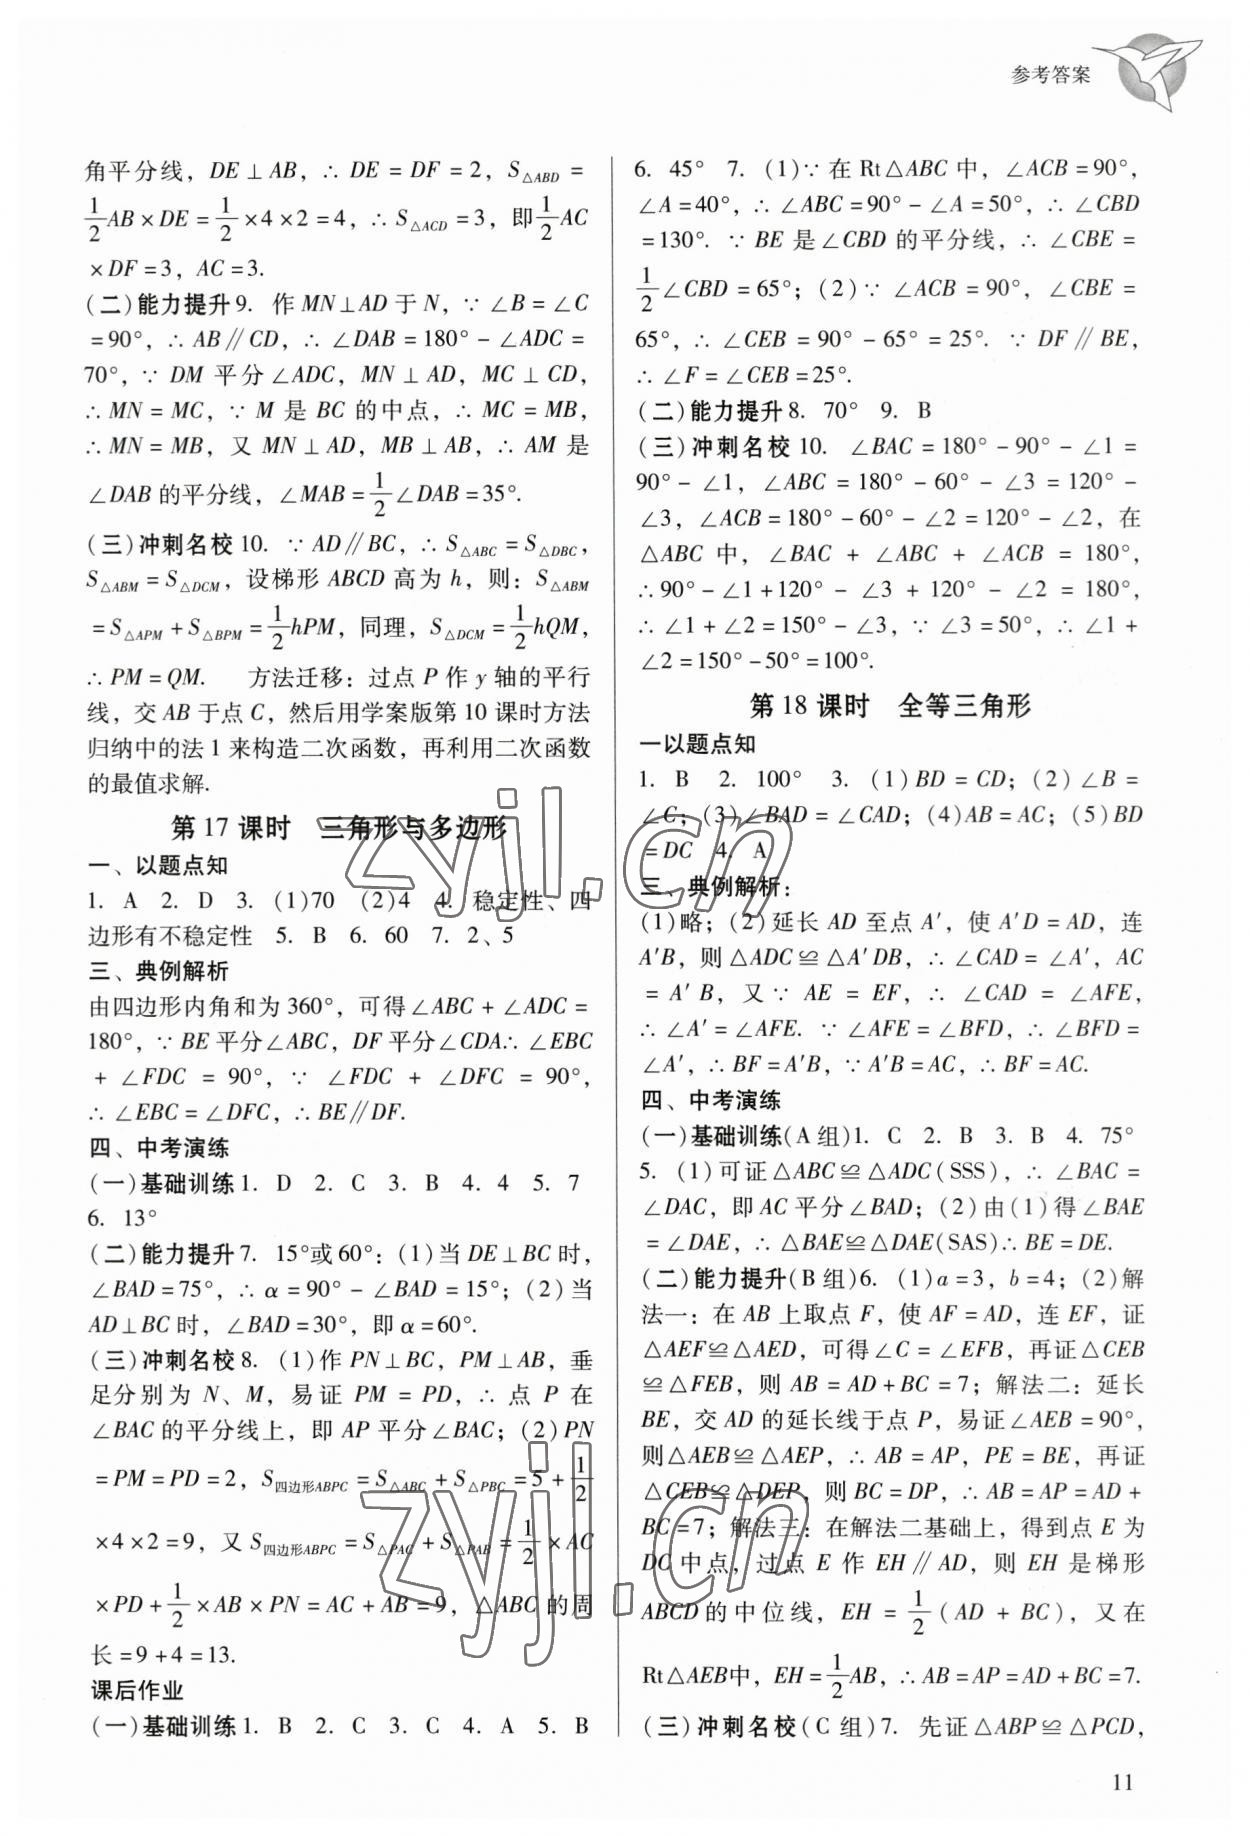 参考答案
角平分线，DE⊥AB，∴DE=DF=2，S△ABD=
1/2AB×DE=1/2×4×2=4，∴S△ACD=3，即1/2AC
×DF=3，AC=3.
(二)能力提升9. 作MN⊥AD于N，∵∠B=∠C
=90°，∴AB∥CD，∴∠DAB=180°-∠ADC=
70°，∵DM平分∠ADC，MN⊥AD，MC⊥CD，
∴MN=MC，∵M是BC的中点，∴MC=MB，
∴MN=MB，又MN⊥AD，MB⊥AB，∴AM是
∠DAB的平分线，∠MAB=1/2∠DAB=35°.
(三)冲刺名校10. ∵AD∥BC，∴S△ABC=S△DBC，
S△ABM=S△DCM，设梯形ABCD高为h，则：S△ABM
=S△APM+S△BPM=1/2hPM，同理，S△DCM=1/2hQM，
∴PM=QM. 方法迁移：过点P作y轴的平行
线，交AB于点C，然后用学案版第10课时方法
归纳中的法1来构造二次函数，再利用二次函数
的最值求解.
第17课时 三角形与多边形
一、以题点知
1. A 2. D 3. (1)70 (2)4 4. 稳定性、四
边形有不稳定性 5. B 6. 60 7. 2、5
三、典例解析
由四边形内角和为360°，可得∠ABC+∠ADC=
180°，∵BE平分∠ABC，DF平分∠CDA∴∠EBC
+∠FDC=90°，∵∠FDC+∠DFC=90°，
∴∠EBC=∠DFC，∴BE∥DF.
四、中考演练
(一)基础训练1. D 2. C 3. B 4. 4 5. 7
6. 13°
(二)能力提升7. 15°或60°：(1)当DE⊥BC时，
∠BAD=75°，∴α=90°-∠BAD=15°；(2)当
AD⊥BC时，∠BAD=30°，即α=60°.
(三)冲刺名校8. (1)作PN⊥BC，PM⊥AB，垂
足分别为N、M，易证PM=PD，∴点P在
∠BAC的平分线上，即AP平分∠BAC；(2)PN
=PM=PD=2，S四边形ABPC=S△ABC+S△PBC=5+1/2
×4×2=9，又S四边形ABPC=S△PAC+S△PAB=1/2×AC
×PD+1/2×AB×PN=AC+AB=9，△ABC的周
长=9+4=13.
课后作业
(一)基础训练1. B 2. C 3. C 4. A 5. B
6. 45° 7. (1)∵在Rt△ABC中，∠ACB=90°，
∠A=40°，∴∠ABC=90°-∠A=50°，∴∠CBD
=130°. ∵BE是∠CBD的平分线，∴∠CBE=
1/2∠CBD=65°；(2)∵∠ACB=90°，∠CBE=
65°，∴∠CEB=90°-65°=25°. ∵DF∥BE，
∴∠F=∠CEB=25°.
(二)能力提升8. 70° 9. B
(三)冲刺名校10. ∠BAC=180°-90°-∠1=
90°-∠1，∠ABC=180°-60°-∠3=120°-
∠3，∠ACB=180°-60°-∠2=120°-∠2，在
△ABC中，∠BAC+∠ABC+∠ACB=180°，
∴90°-∠1+120°-∠3+120°-∠2=180°，
∴∠1+∠2=150°-∠3，∵∠3=50°，∴∠1+
∠2=150°-50°=100°.
第18课时 全等三角形
一以题点知
1. B 2. 100° 3. (1)BD=CD；(2)∠B=
∠C；(3)∠BAD=∠CAD；(4)AB=AC；(5)BD
=DC 4. A
三、典例解析：
(1)略；(2)延长AD至点A′，使A′D=AD，连
A′B，则△ADC≌△A′DB，∴∠CAD=∠A′，AC
=A′B，又∵AE=EF，∴∠CAD=∠AFE，
∴∠A′=∠AFE. ∵∠AFE=∠BFD，∴∠BFD=
∠A′，∴BF=A′B，∵A′B=AC，∴BF=AC.
四、中考演练
(一)基础训练(A组)1. C 2. B 3. B 4. 75°
5. (1)可证△ABC≌△ADC(SSS)，∴∠BAC=
∠DAC，即AC平分∠BAD；(2)由(1)得∠BAE
=∠DAE，∴△BAE≌△DAE(SAS)∴BE=DE.
(二)能力提升(B组)6. (1)a=3，b=4；(2)解
法一：在AB上取点F，使AF=AD，连EF，证
△AEF≌△AED，可得∠C=∠EFB，再证△CEB
≌△FEB，则AB=AD+BC=7；解法二：延长
BE，交AD的延长线于点P，易证∠AEB=90°，
则△AEB≌△AEP，∴AB=AP，PE=BE，再证
△CEB≌△DEP，则BC=DP，∴AB=AP=AD+
BC=7；解法三：在解法二基础上，得到点E为
DC中点，过点E作EH∥AD，则EH是梯形
ABCD的中位线，EH=1/2(AD+BC)，又在
Rt△AEB中，EH=1/2AB，∴AB=AP=AD+BC=7.
(三)冲刺名校(C组)7. 先证△ABP≌△PCD，
11
zyjl.cn
zyjl.cn